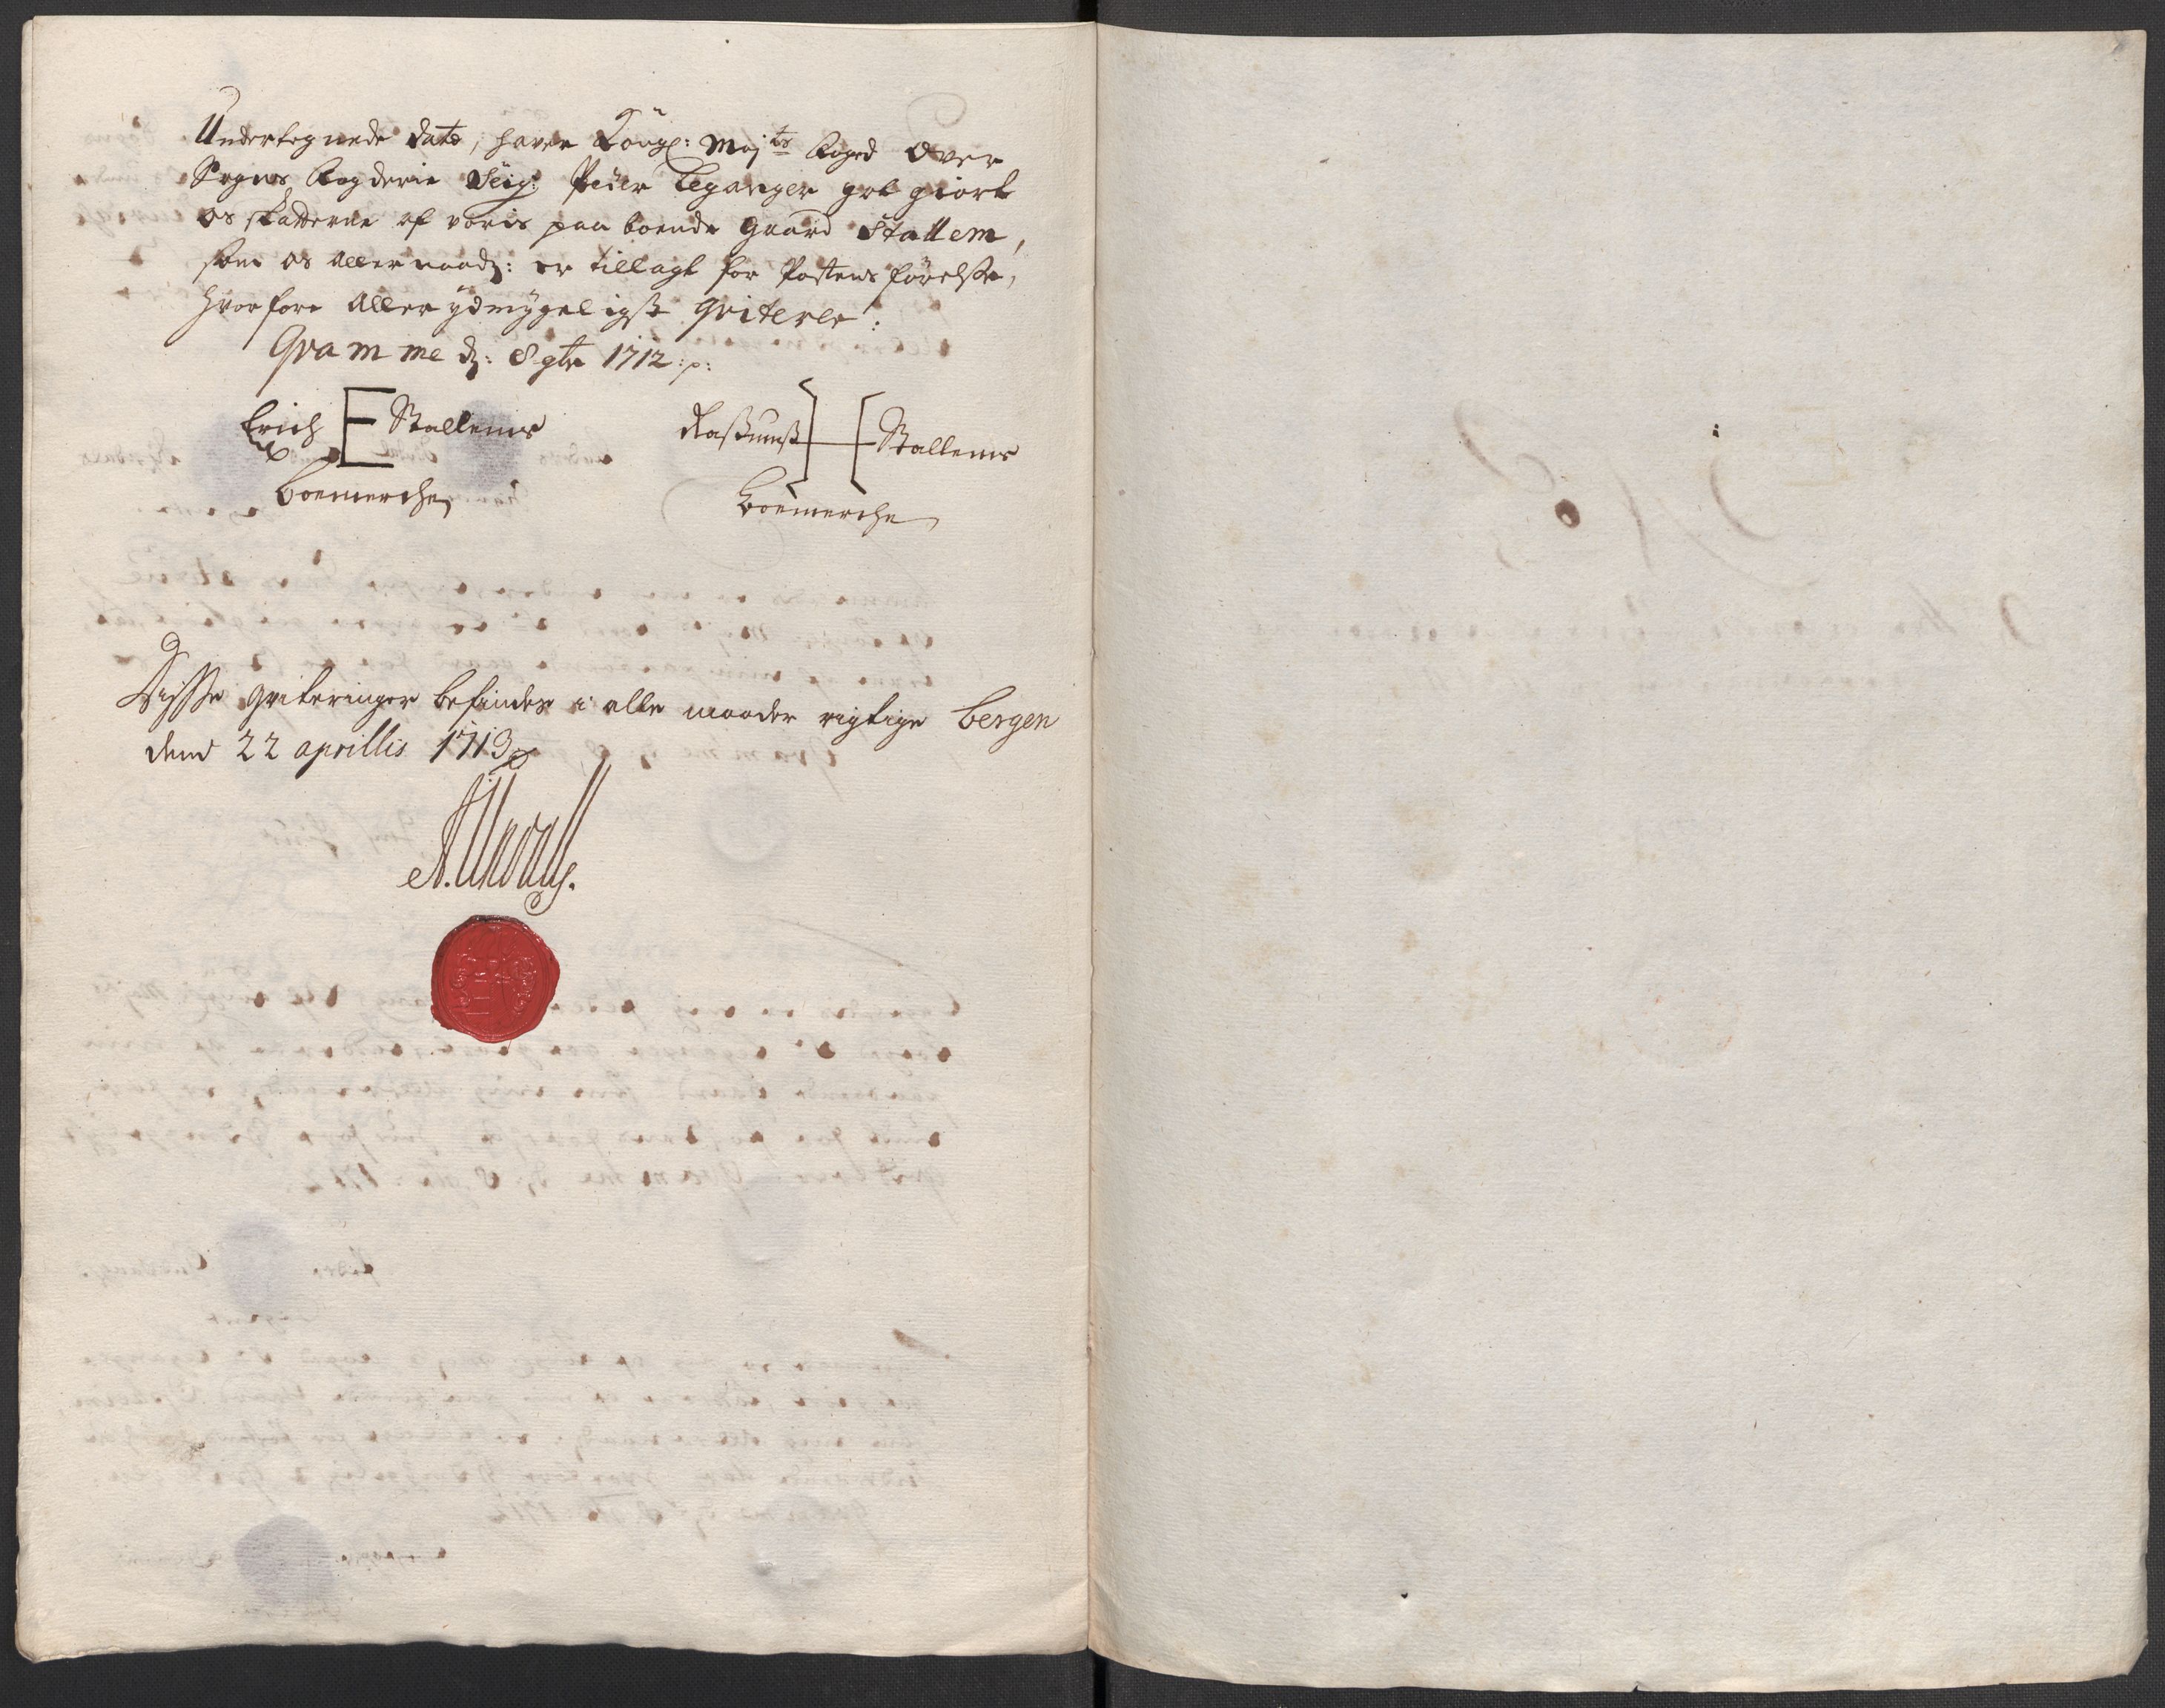 Undertegnede dato, haver Kongl: Maj:ts foged over
Sogns fogderie Seig: Peder Leganger got giort
os skatterne af voris paa boende gaard Stallem,
som os allernaadg: er tillagt for Postens förelsse,
hvorfore aller ydmygeligst qviterer:
Qvamme d: 8 9br 1712:p:
Erich E Stallems
boemerche
Raßmuß ] [ Stallems
boemerche
Disse qviteringer befindes i alle maader rigtige Bergen
dend 22 aprillis 1713